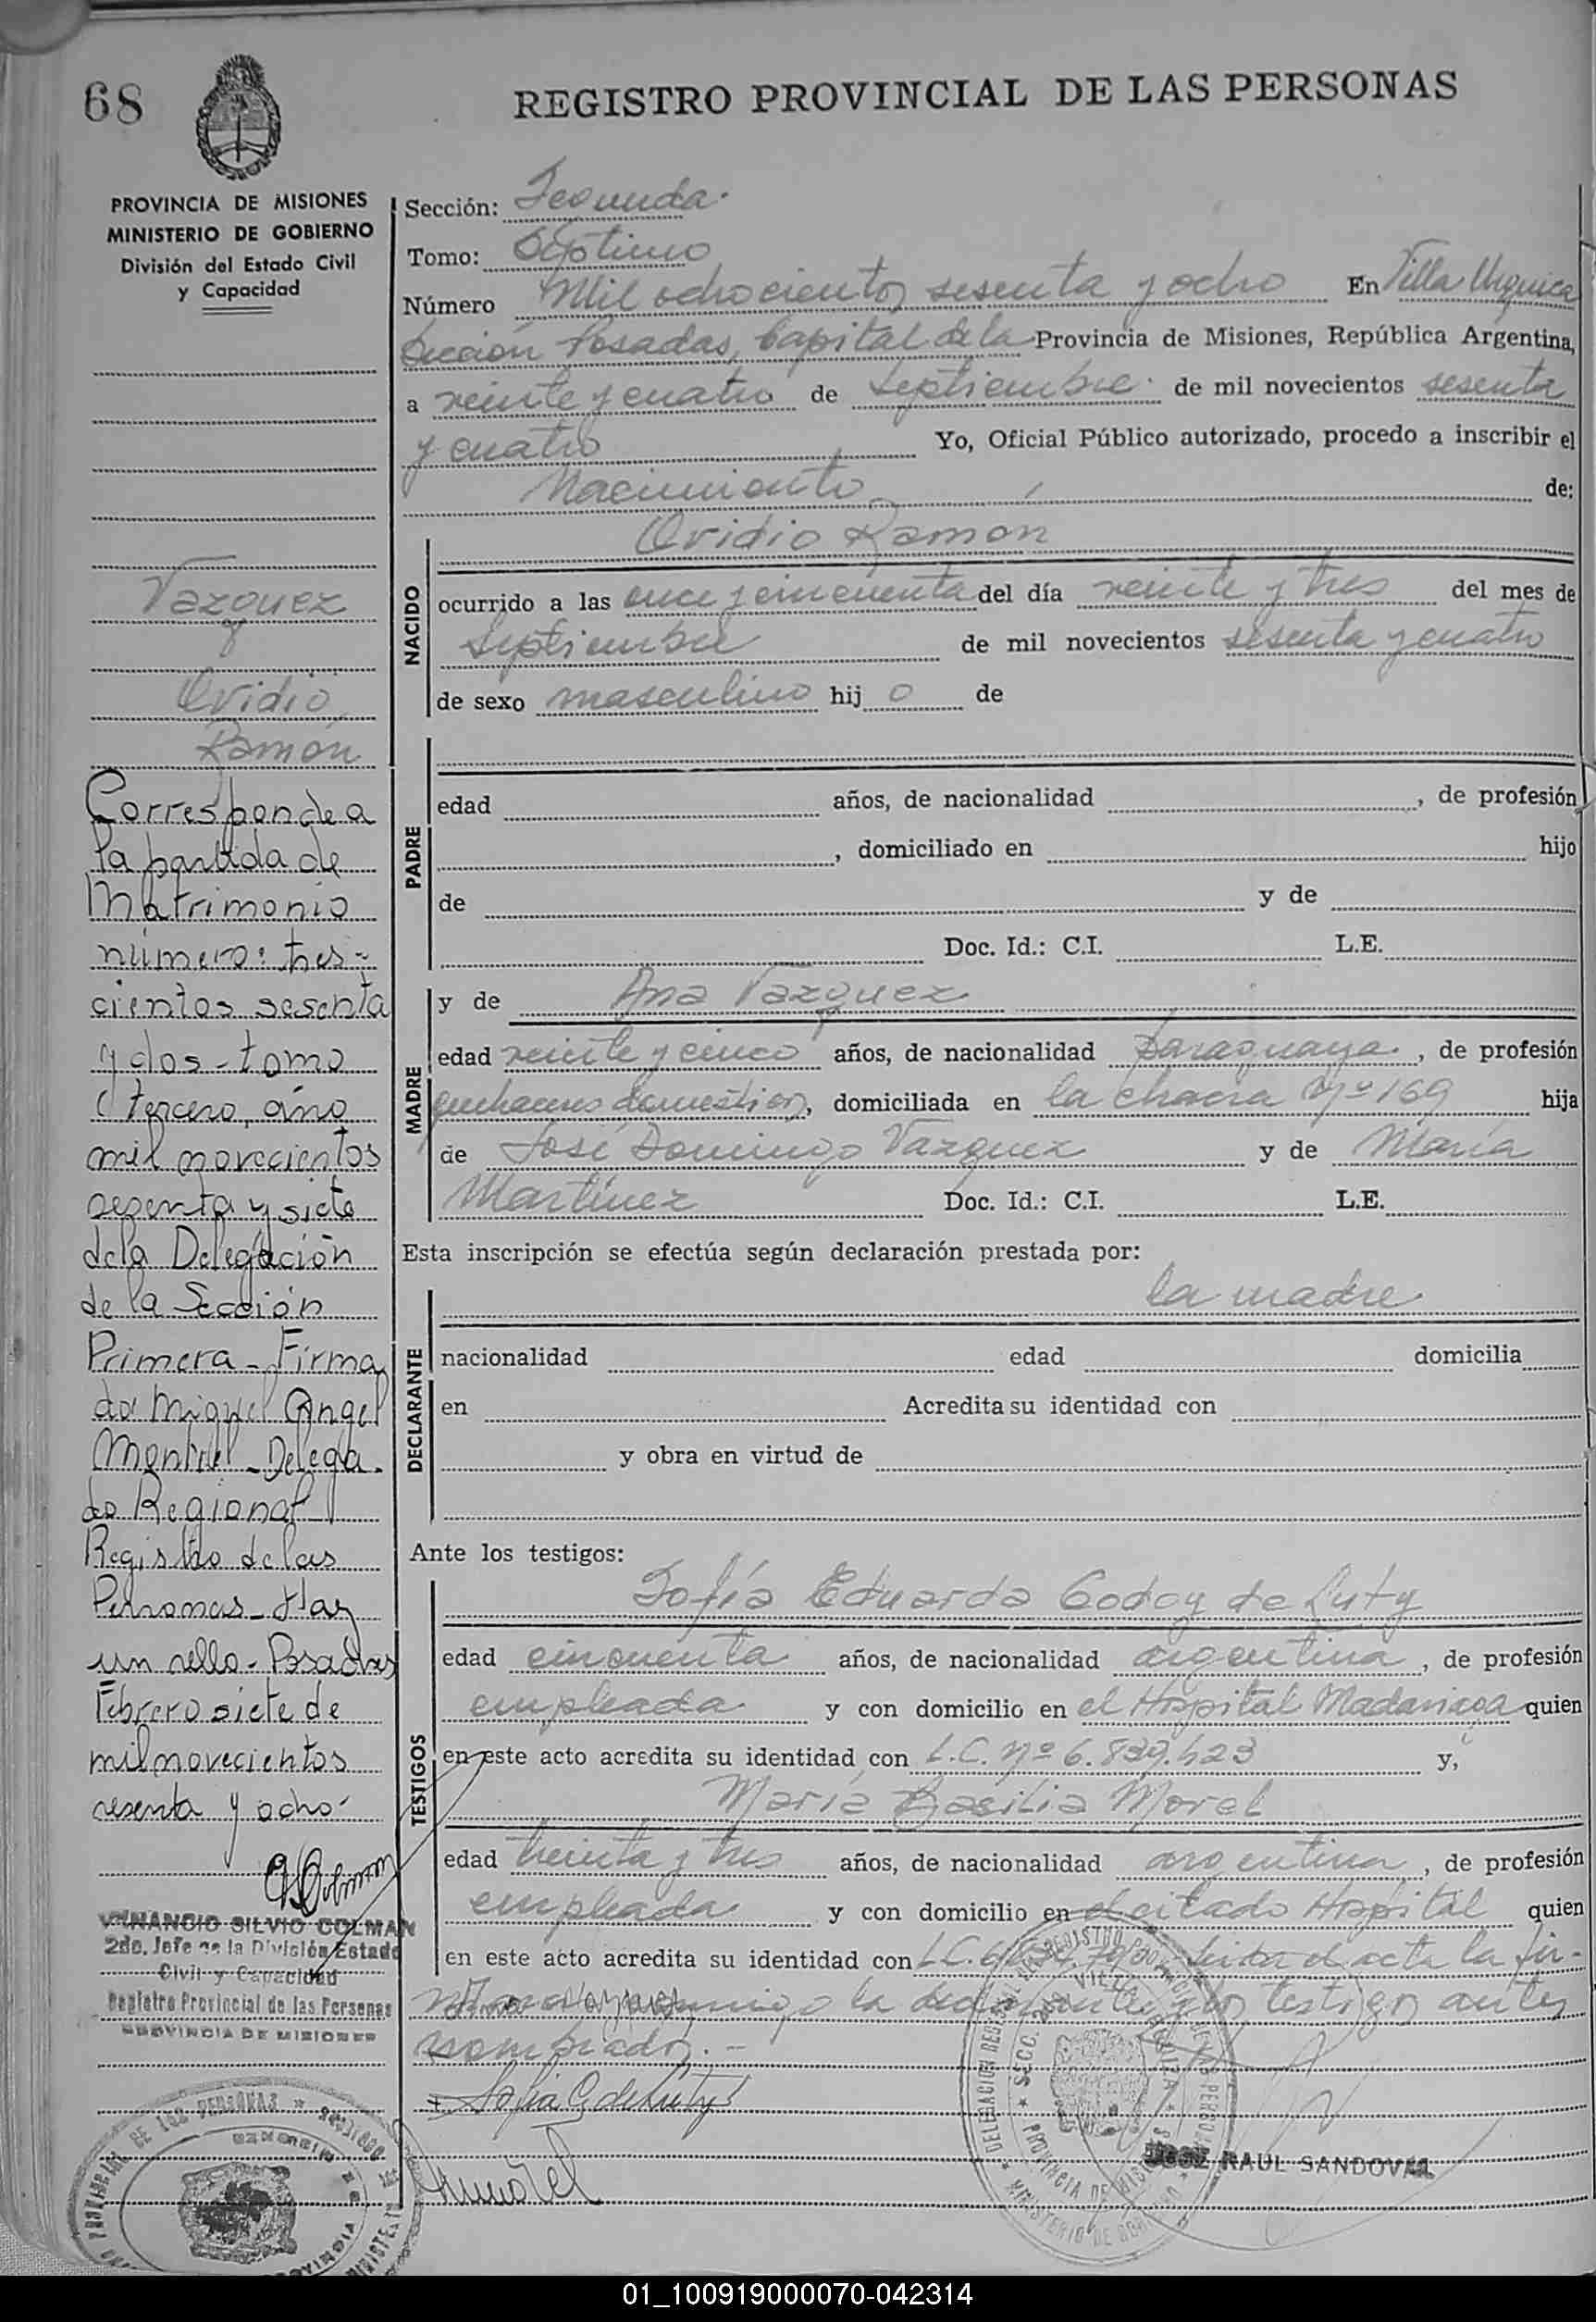 68
REGISTRO PROVINCIAL DE LAS PERSONAS
PROVINCIA DE MISIONES
MINISTERIO DE GOBIERNO
División del Estado Civil
y Capacidad
Vazquez
Ovidio
Ramón
Corresponde a
la partida de
Matrimonio
número: tres-
cientos sesenta
y dos - tomo
tercero, año
mil novecientos
sesenta y siete
de la Delegación
de la Sección
Primera - Firma
do: Miguel Angel
Montiel - Delega-
do Regional
Registro de las
Personas - Hay
un sello - Posadas
Febrero siete de
mil novecientos
sesenta y ocho
VENANCIO SILVIO COLMAN
2do. Jefe de la División Estado
Civil y Capacidad
Registro Provincial de las Personas
PROVINCIA DE MISIONES
Sección: Segunda.
Tomo: Séptimo
Número Mil ochocientos sesenta y ocho En Villa Urquiza
Sección Posadas, Capital de la Provincia de Misiones, República Argentina,
a veinte y cuatro de Septiembre de mil novecientos sesenta
y cuatro Yo, Oficial Público autorizado, procedo a inscribir el
Nacimiento de:
NACIDO
Ovidio Ramon
ocurrido a las once y cincuenta del día veinte y tres del mes de
Septiembre de mil novecientos sesenta y cuatro
de sexo masculino hij o de
PADRE
edad años, de nacionalidad , de profesión
, domiciliado en hijo
de y de
Doc. Id.: C.I. L.E.
MADRE
y de Ana Vazquez
edad veinte y cinco años, de nacionalidad paraguaya , de profesión
quehaceres domesticos, domiciliada en la chacra Nº 169 hija
de José Domingo Vazquez y de María
Martínez Doc. Id.: C.I. L.E.
Esta inscripción se efectúa según declaración prestada por:
DECLARANTE
la madre
nacionalidad edad domicilia
en Acredita su identidad con
y obra en virtud de
Ante los testigos:
TESTIGOS
Sofía Eduarda Godoy de Luty
edad cincuenta años, de nacionalidad argentina , de profesión
empleada y con domicilio en el Hospital Madariaga quien
en este acto acredita su identidad con L.C. Nº 6.839.423 y,
María Basilia Morel
edad treinta y tres años, de nacionalidad argentina , de profesión
empleada y con domicilio en el citado Hospital quien
en este acto acredita su identidad con L.C. leida el acta la fir-
conmigo la declarante y los testigos antes
nombrados.-
Sofia G de Luty
JOSE RAUL SANDOVAL
01_100919000070-042314